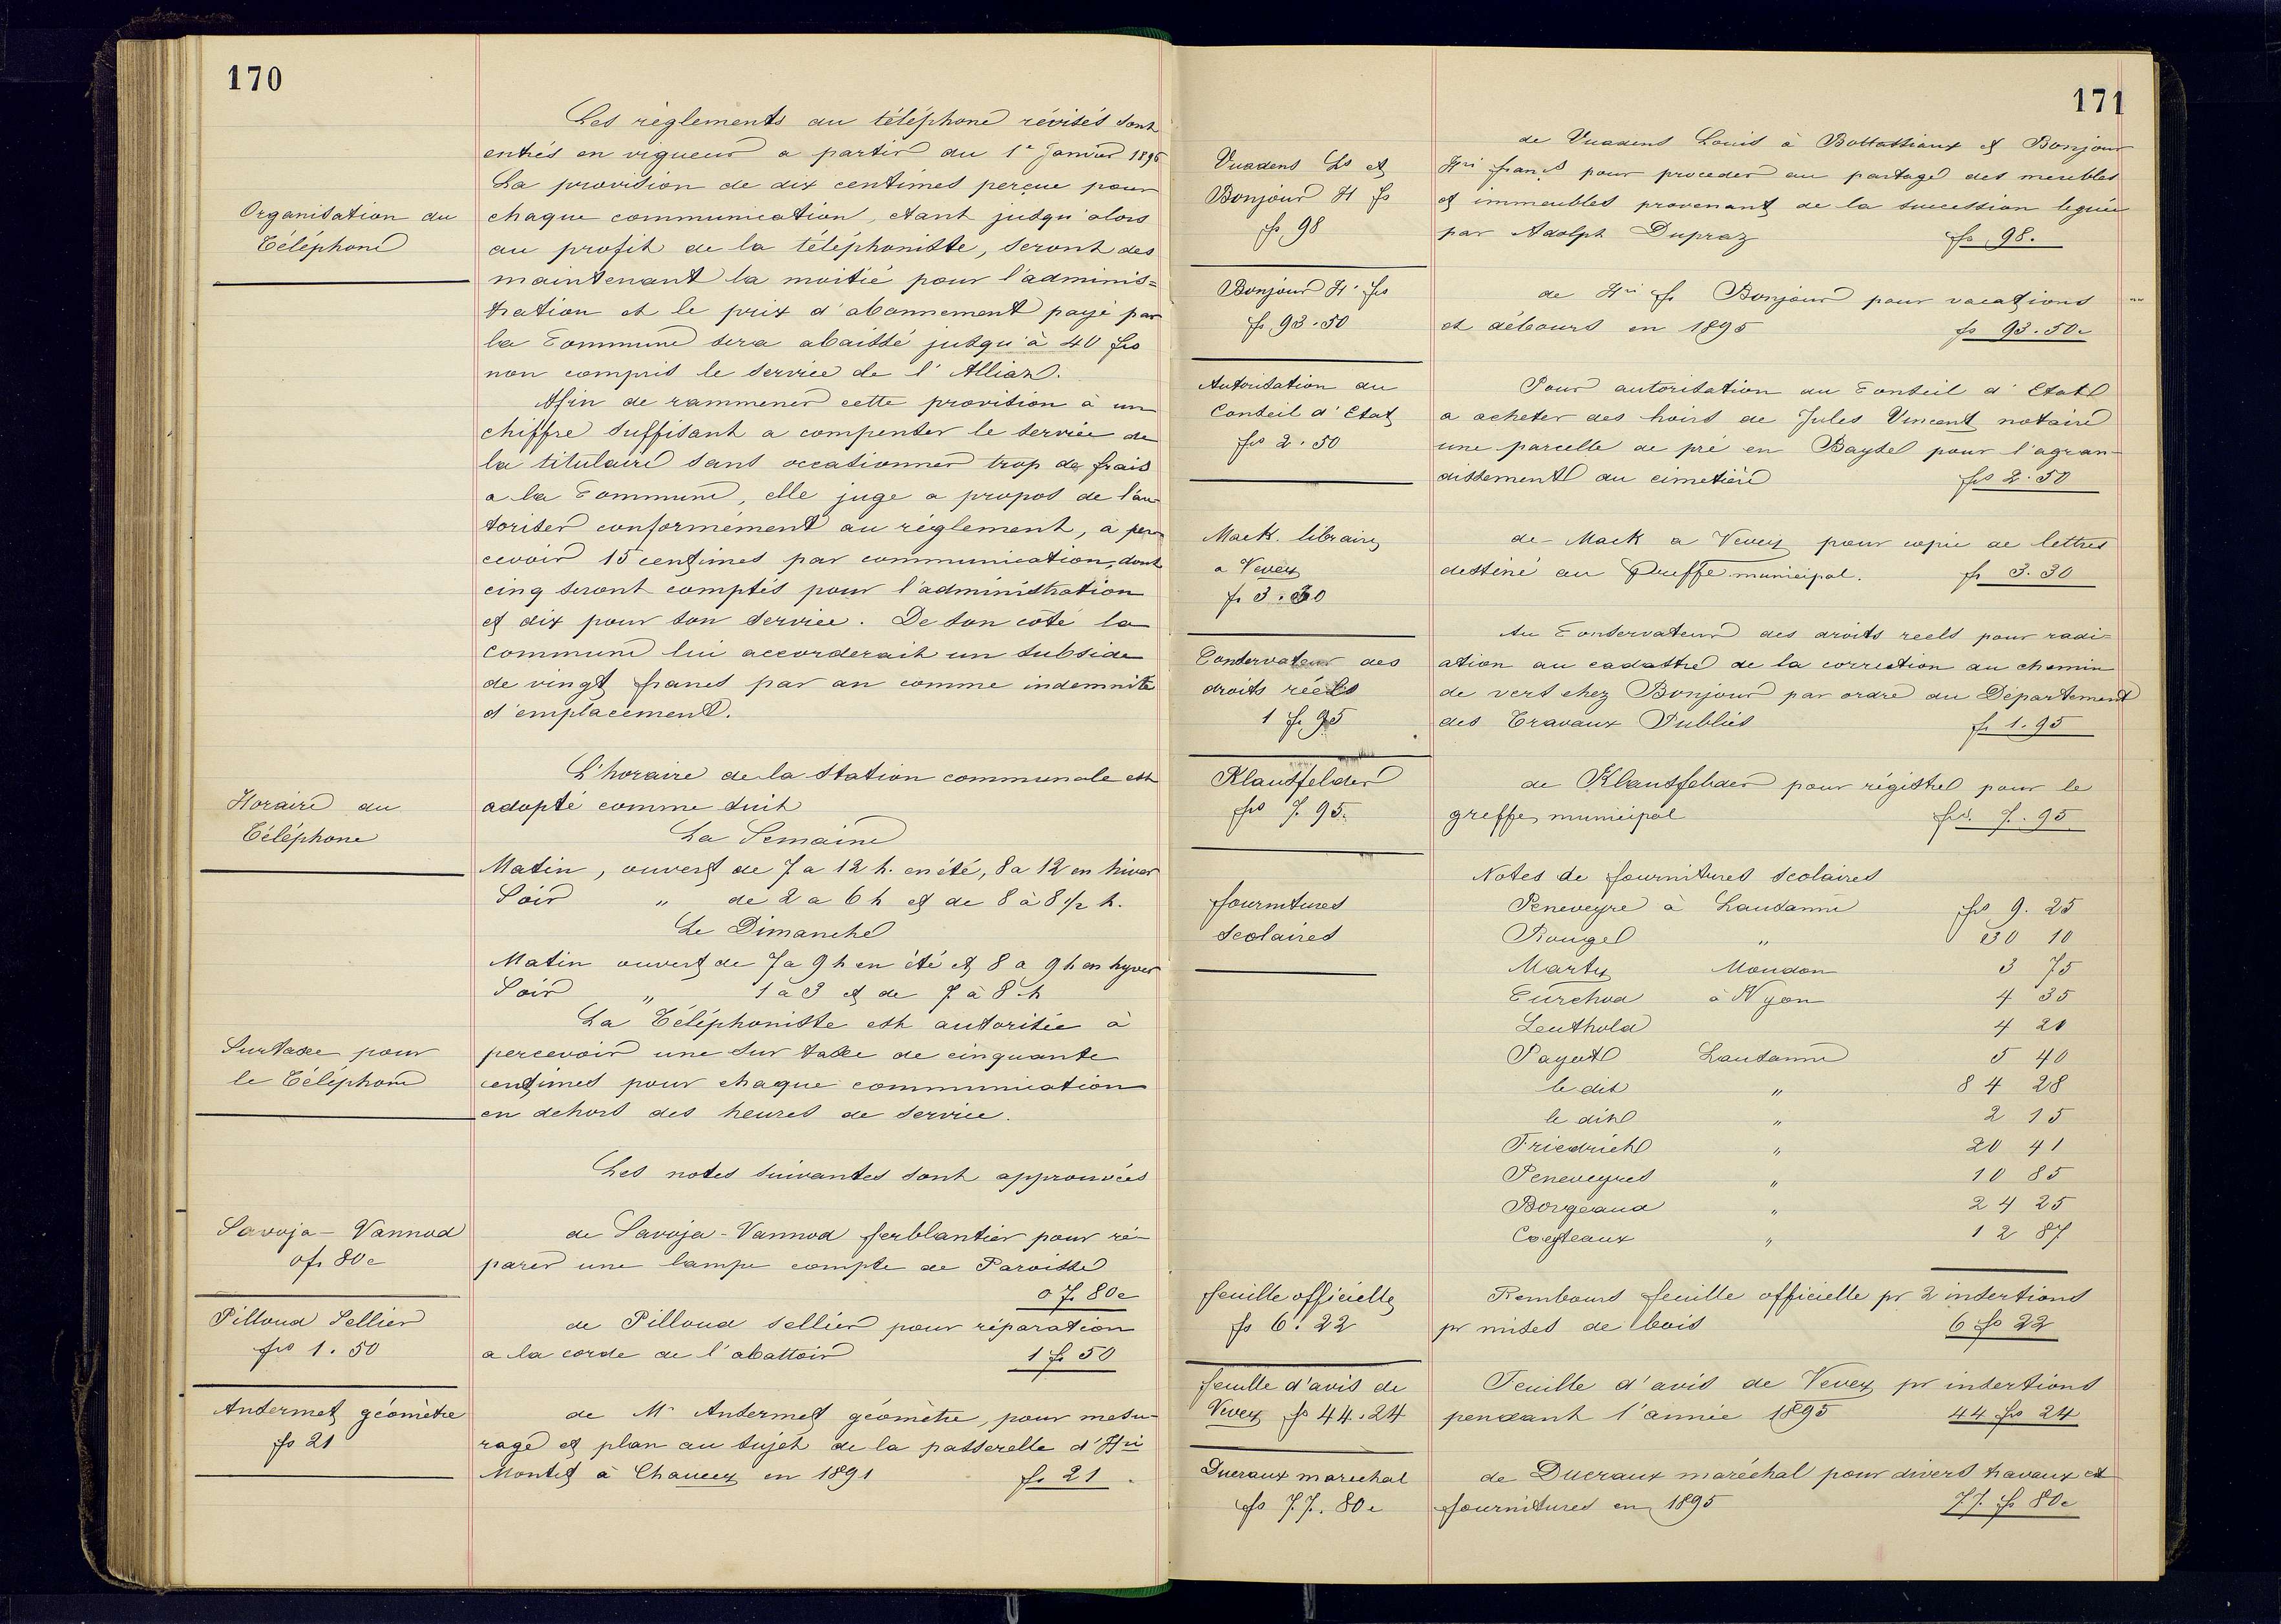 170
Les règlements du téléphone révisés sont
entrés en vigueur a partir du 1er Janvier 1896
La provision de dix centimes perçue pour
Organisation du
chaque communication, étant jusqu'alors
Téléphone
au profit de la téléphoniste, seront des
maintenant la moitié pour l'adminis=
tration et le prix d'abonnement payé par
la Commune sera abaissé jusqu'à 40 frs
non compris le service de l'Alliaz.
Afin de rammener cette provision à un
chiffre suffisant a compenser le service de
la titulaire sans occasionner trop de frais
a la Commune, elle juge a propos de l'au
toriser conformément au règlement, à per
cevoir 15 centimes par communication, dont
cinq seront comptés pour l'administration
et dix pour son service. De son côté la
commune lui accorderait un subside
de vingt francs par an comme indemnité
d'emplacement.
L'horaire de la Station communale est
Horaire du
adopté comme suit
Téléphone
La Semaine
Matin, ouvert de 7 a 12 h. en été, 8 a 12 en hiver
Soir " de 2 a 6 h et de 8 à 8 1/2 h.
Le Dimanche
Matin ouvert de 7 a 9 h en été et 8 a 9 h en hyver
Soir " 1 à 3 et de 7 à 8 h
La Téléphoniste est autorisée à
Surtaxe pour
percevoir une sur taxe de cinquante
le Téléphone
centimes pour chaque communication
en dehors des heures de service.
Les notes suivantes sont approuvées
Savoja - Vannod
0 fr 80 c
de Savoja - Vannod ferblantier pour ré-
parer une lampe compte de Paroisse
0 f 80 c
Pilloud Sellier
frs 1. 50
de Pilloud sellier pour réparation
a la corde de l'abattoir 1 fr 50
Ansermet géomètre
frs 21
de Mr Ansermet géomètre, pour mesu-
rage et plan au sujet de la passerelle d'Hri
Montet à Chaucey en 1891 frs 21 .
171
Vuadens Ls et
Bonjour H fs
frs 98
de Vuadens Louis à Bottossiaux et Bonjour
Hri franç pour proceder au partage des meubles
et immeubles provenant de la succession leguée
par Adolph Dupraz frs 98.
Bonjour H. fs
fr 93.50
de Hri fs Bonjour pour vacations
et débours en 1895 frs 93.50c
Autorisation du
Conseil d'Etat
frs 2.50
Pour autorisation du Conseil d'Etat
a acheter des hoirs de Jules Vincent notaire
une parcelle de pré en Baysel pour l'agran-
dissement du cimetière frs 2.50
Mack. libraire
a Vevey
fr 3.30
de Mack a Vevey pour copie de lettres
destiné au Greffe municipal. fr 3.30
Conservateur des
droits réels
1 fr 95
Au Conservateur des droits reels pour radi-
ation au cadastre de la correction du chemin
de vers chez Bonjour par ordre du Département
des Travaux Publics fr 1.95
Klausfelder
frs 7.95.
de Klausfelder pour régistre pour le
greffe municipal frs. 7.95
fournitures
scolaires
Notes de fournitures scolaires
Peneveyre à Lausanne frs 9. 25
Rouge " 30 10
Marty Moudon 3 75
Curchod à Nyon 4 35
Leuthold 4 20
Payot Lausanne 5 40
le dit " 84 28
le dit " 2 15
Friedrich " 20 41
Peneveyres " 10 85
Borgeaud " 24 25
Coesteaux " 12 87
feuille officielle
frs 6.22
Rembours feuille officielle pr 2 insertions
pr mises de bois 6 frs 22
feuille d'avis de
Vevey frs 44.24
Feuille d'avis de Vevey pr insertions
pendant l'année 1895 44 frs 24
Ducraux marechal
frs 77.80c
de Ducraux maréchal pour divers travaux et
fournitures en 1895 77. frs 80c